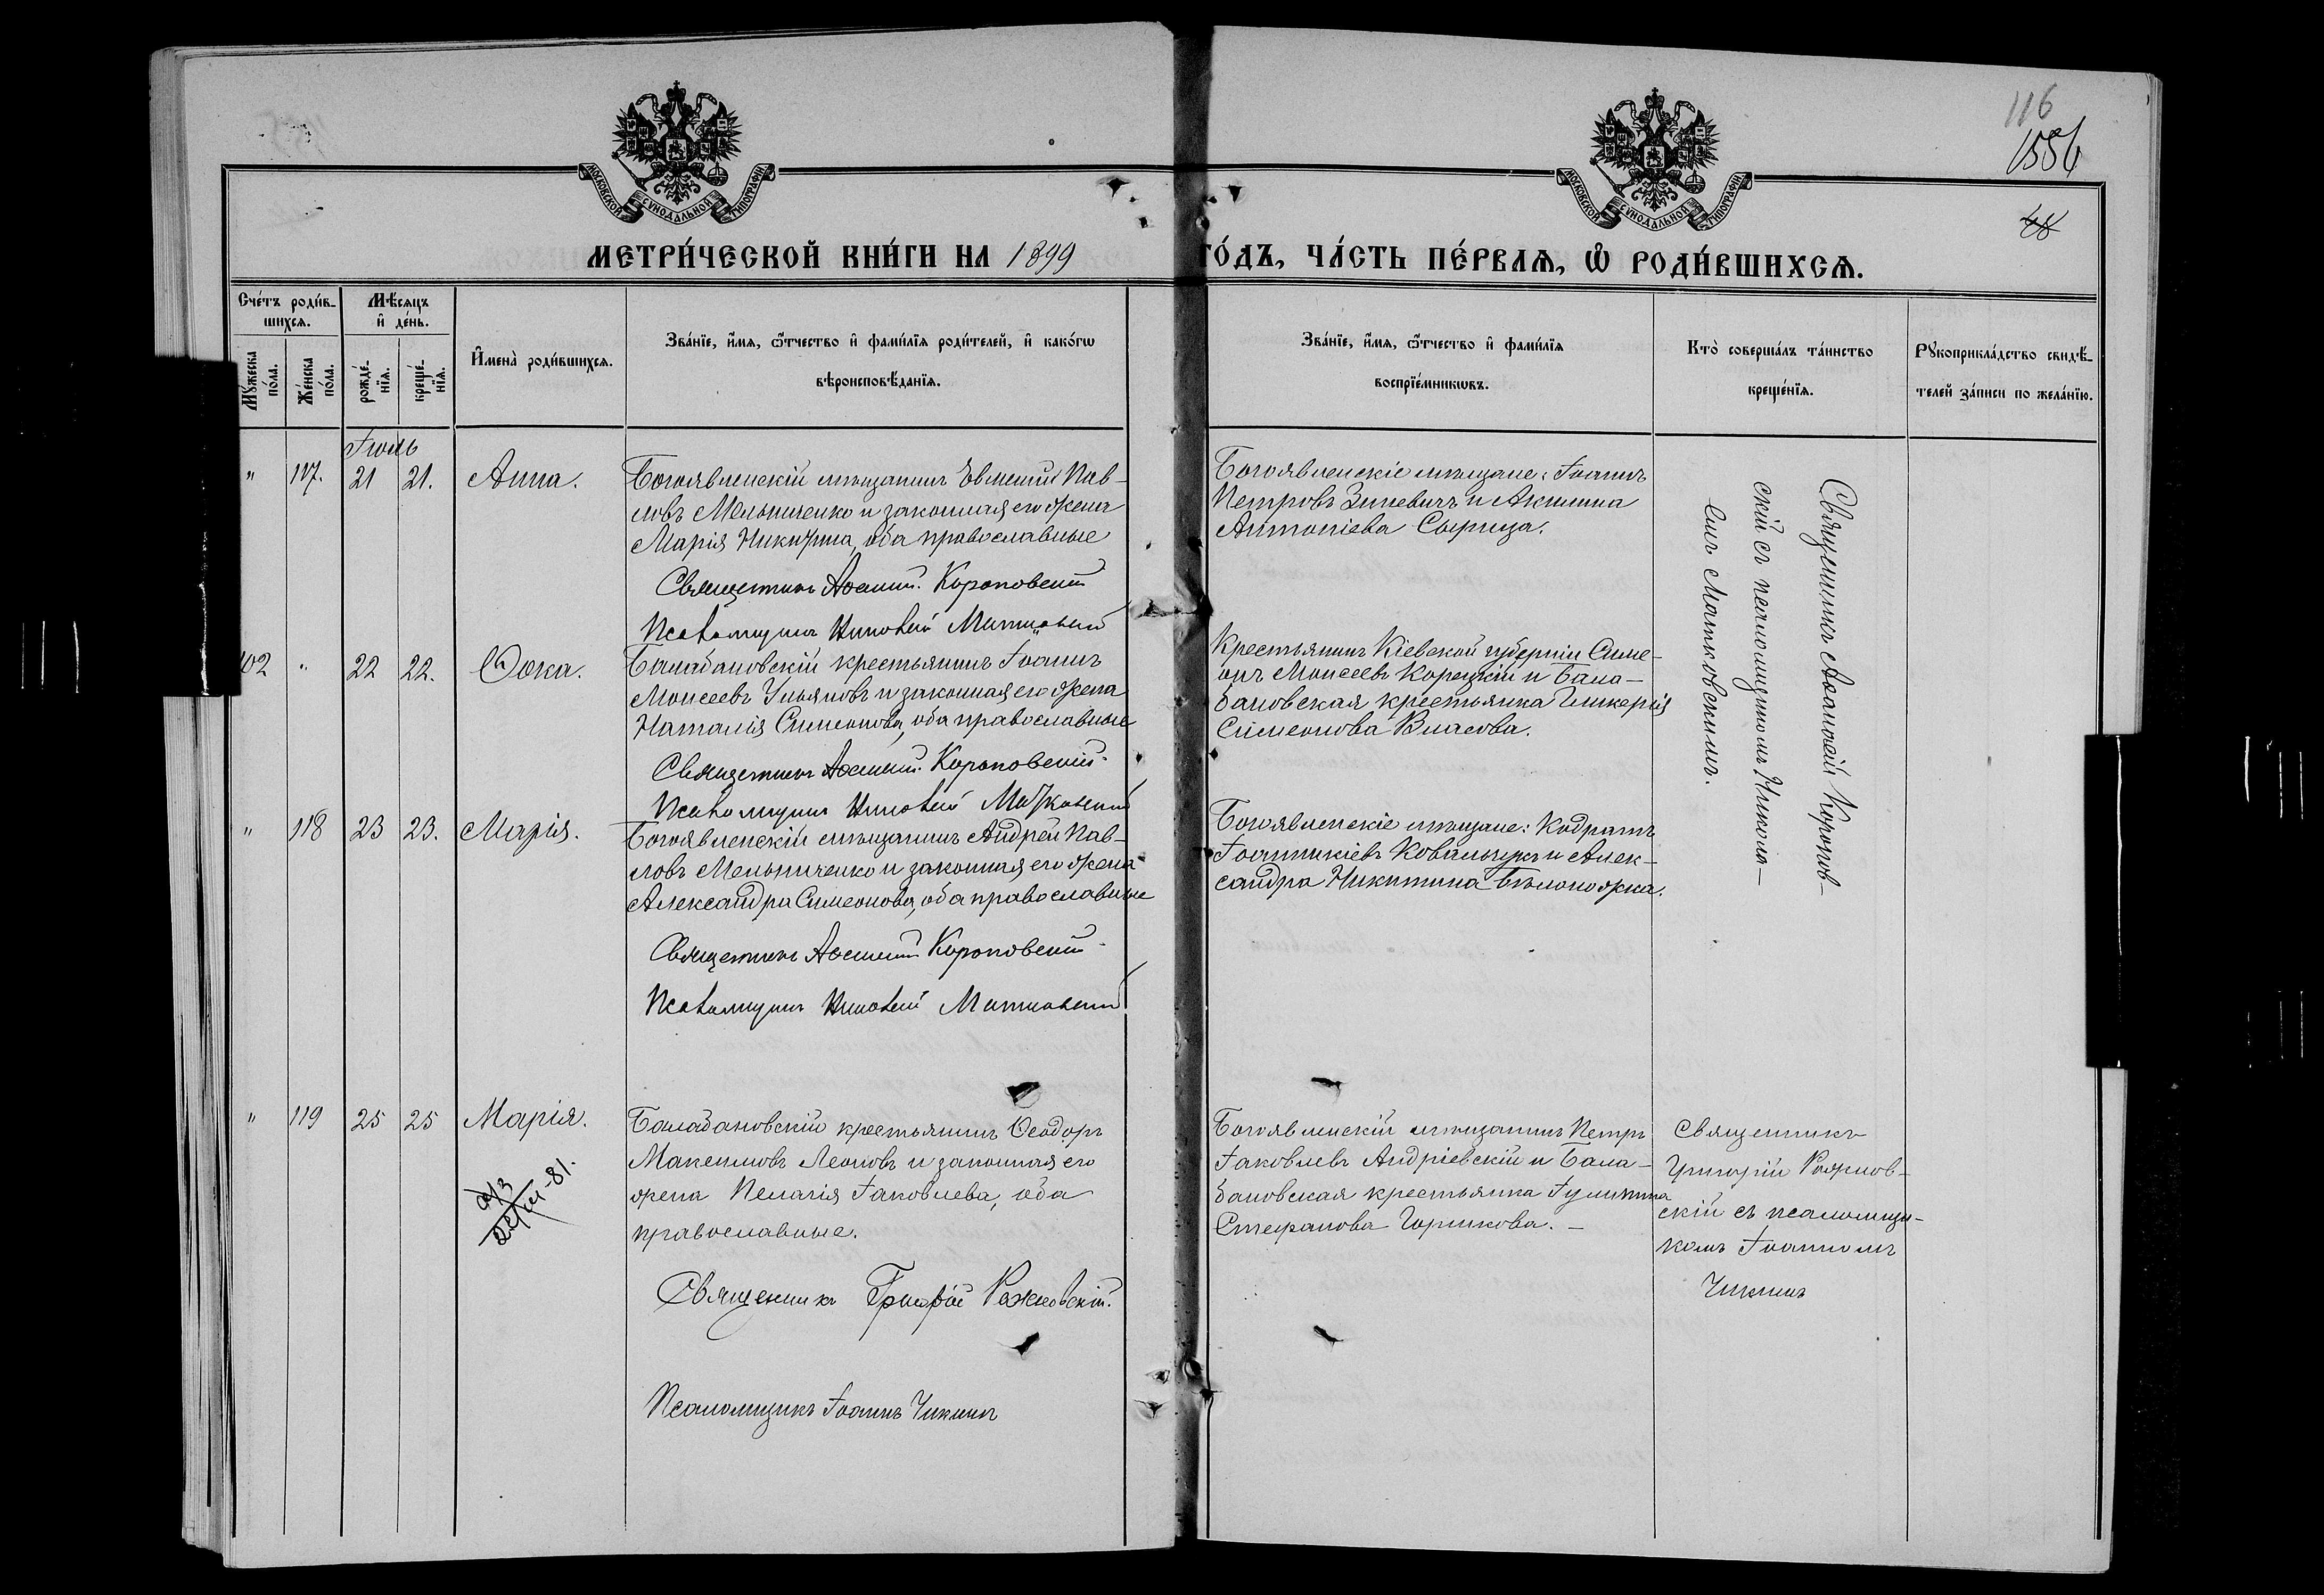 116
1556
48
МОСКОВСКОЙ СѴНОДАЛЬНОЙ ТИПОГРАФІИ
МОСКОВСКОЙ СѴНОДАЛЬНОЙ ТИПОГРАФІИ
МЕТРИ́ЧЕСКОЙ КНИ́ГИ НА 1899 ГО́ДЪ, ЧА́СТЬ ПЕ́РВАѦ, Ѽ РОДИ́ВШИХСѦ.
Сче́тъ роди́в-
шихсѧ.
Мѣ́сѧцъ
и҆ де́нь.
Мꙋ́жеска
по́ла.
Же́нска
по́ла.
рожде́-
нїѧ.
креще́-
нїѧ.
И҆мена̀ роди́вшихсѧ.
Зва́нїе, и҆́мѧ, ѻ҆́тчество и҆ фами́лїѧ роди́телей, и҆ како́гѡ
вѣроисповѣ́данїѧ.
Зва́нїе, и҆́мѧ, ѻ҆́тчество и҆ фами́лїѧ
воспрїе́мникѡвъ.
Кто̀ соверша́лъ та́инство
креще́нїѧ.
Рꙋкоприкла́дство свидѣ́-
телей за́писи по жела́нїю.
Іюль
" 117. 21 21. Анна.
Богоявленскій мѣщанинъ Евменій Пав-
ловъ Мельниченко и законная его жена
Марія Никитина, оба православные
Священникъ Аѳанасій Короповскій
Псаломщикъ Николай Матковскій
Богоявленскіе мѣщане: Іоаннъ
Петровъ Зиневичъ и Акилина
Антоніева Сырица.
102 " 22 22. Ѳока.
Балабановскій крестьянинъ Іоаннъ
Моисеевъ Ульяновъ и законная его жена
Наталія Симеонова, оба православные
Священникъ Аѳанасій Короповскій
Псаломщикъ Николай Матковскій
Крестьянинъ Кіевской губерніи Симе-
онъ Моисеевъ Корецкій и Бала-
бановская крестьянка Гликерія
Симеонова Власова.
" 118 23 23. Марія.
Богоявленскій мѣщанинъ Андрей Пав-
ловъ Мельниченко и законная его жена
Александра Симеонова, оба православные
Священникъ Аѳанасій Короповскій
Псаломщикъ Николай Матковскій
Богоявленскіе мѣщане: Кодратъ
Іоанникіевъ Ковальчукъ и Алек-
сандра Никитина Бѣлоножка.
Священникъ Аѳанасій Коропов-
скій съ псаломщикомъ Никола-
емъ Матковскимъ.
" 119 25 25 Марія.
Балабановскій крестьянинъ Ѳеодоръ
Максимовъ Леоновъ и законная его
жена Пелагія Іаковлева, оба
православные.
Священникъ Григорій Рожновскій.
Псаломщикъ Іоаннъ Чикинъ
Богоявленскій мѣщанинъ Петръ
Іаковлевъ Андріевскій и Бала-
бановская крестьянка Іулитта
Стефанова Горшкова. -
Священникъ
Григорій Рожнов-
скій съ псаломщи-
комъ Іоанномъ
Чикинъ